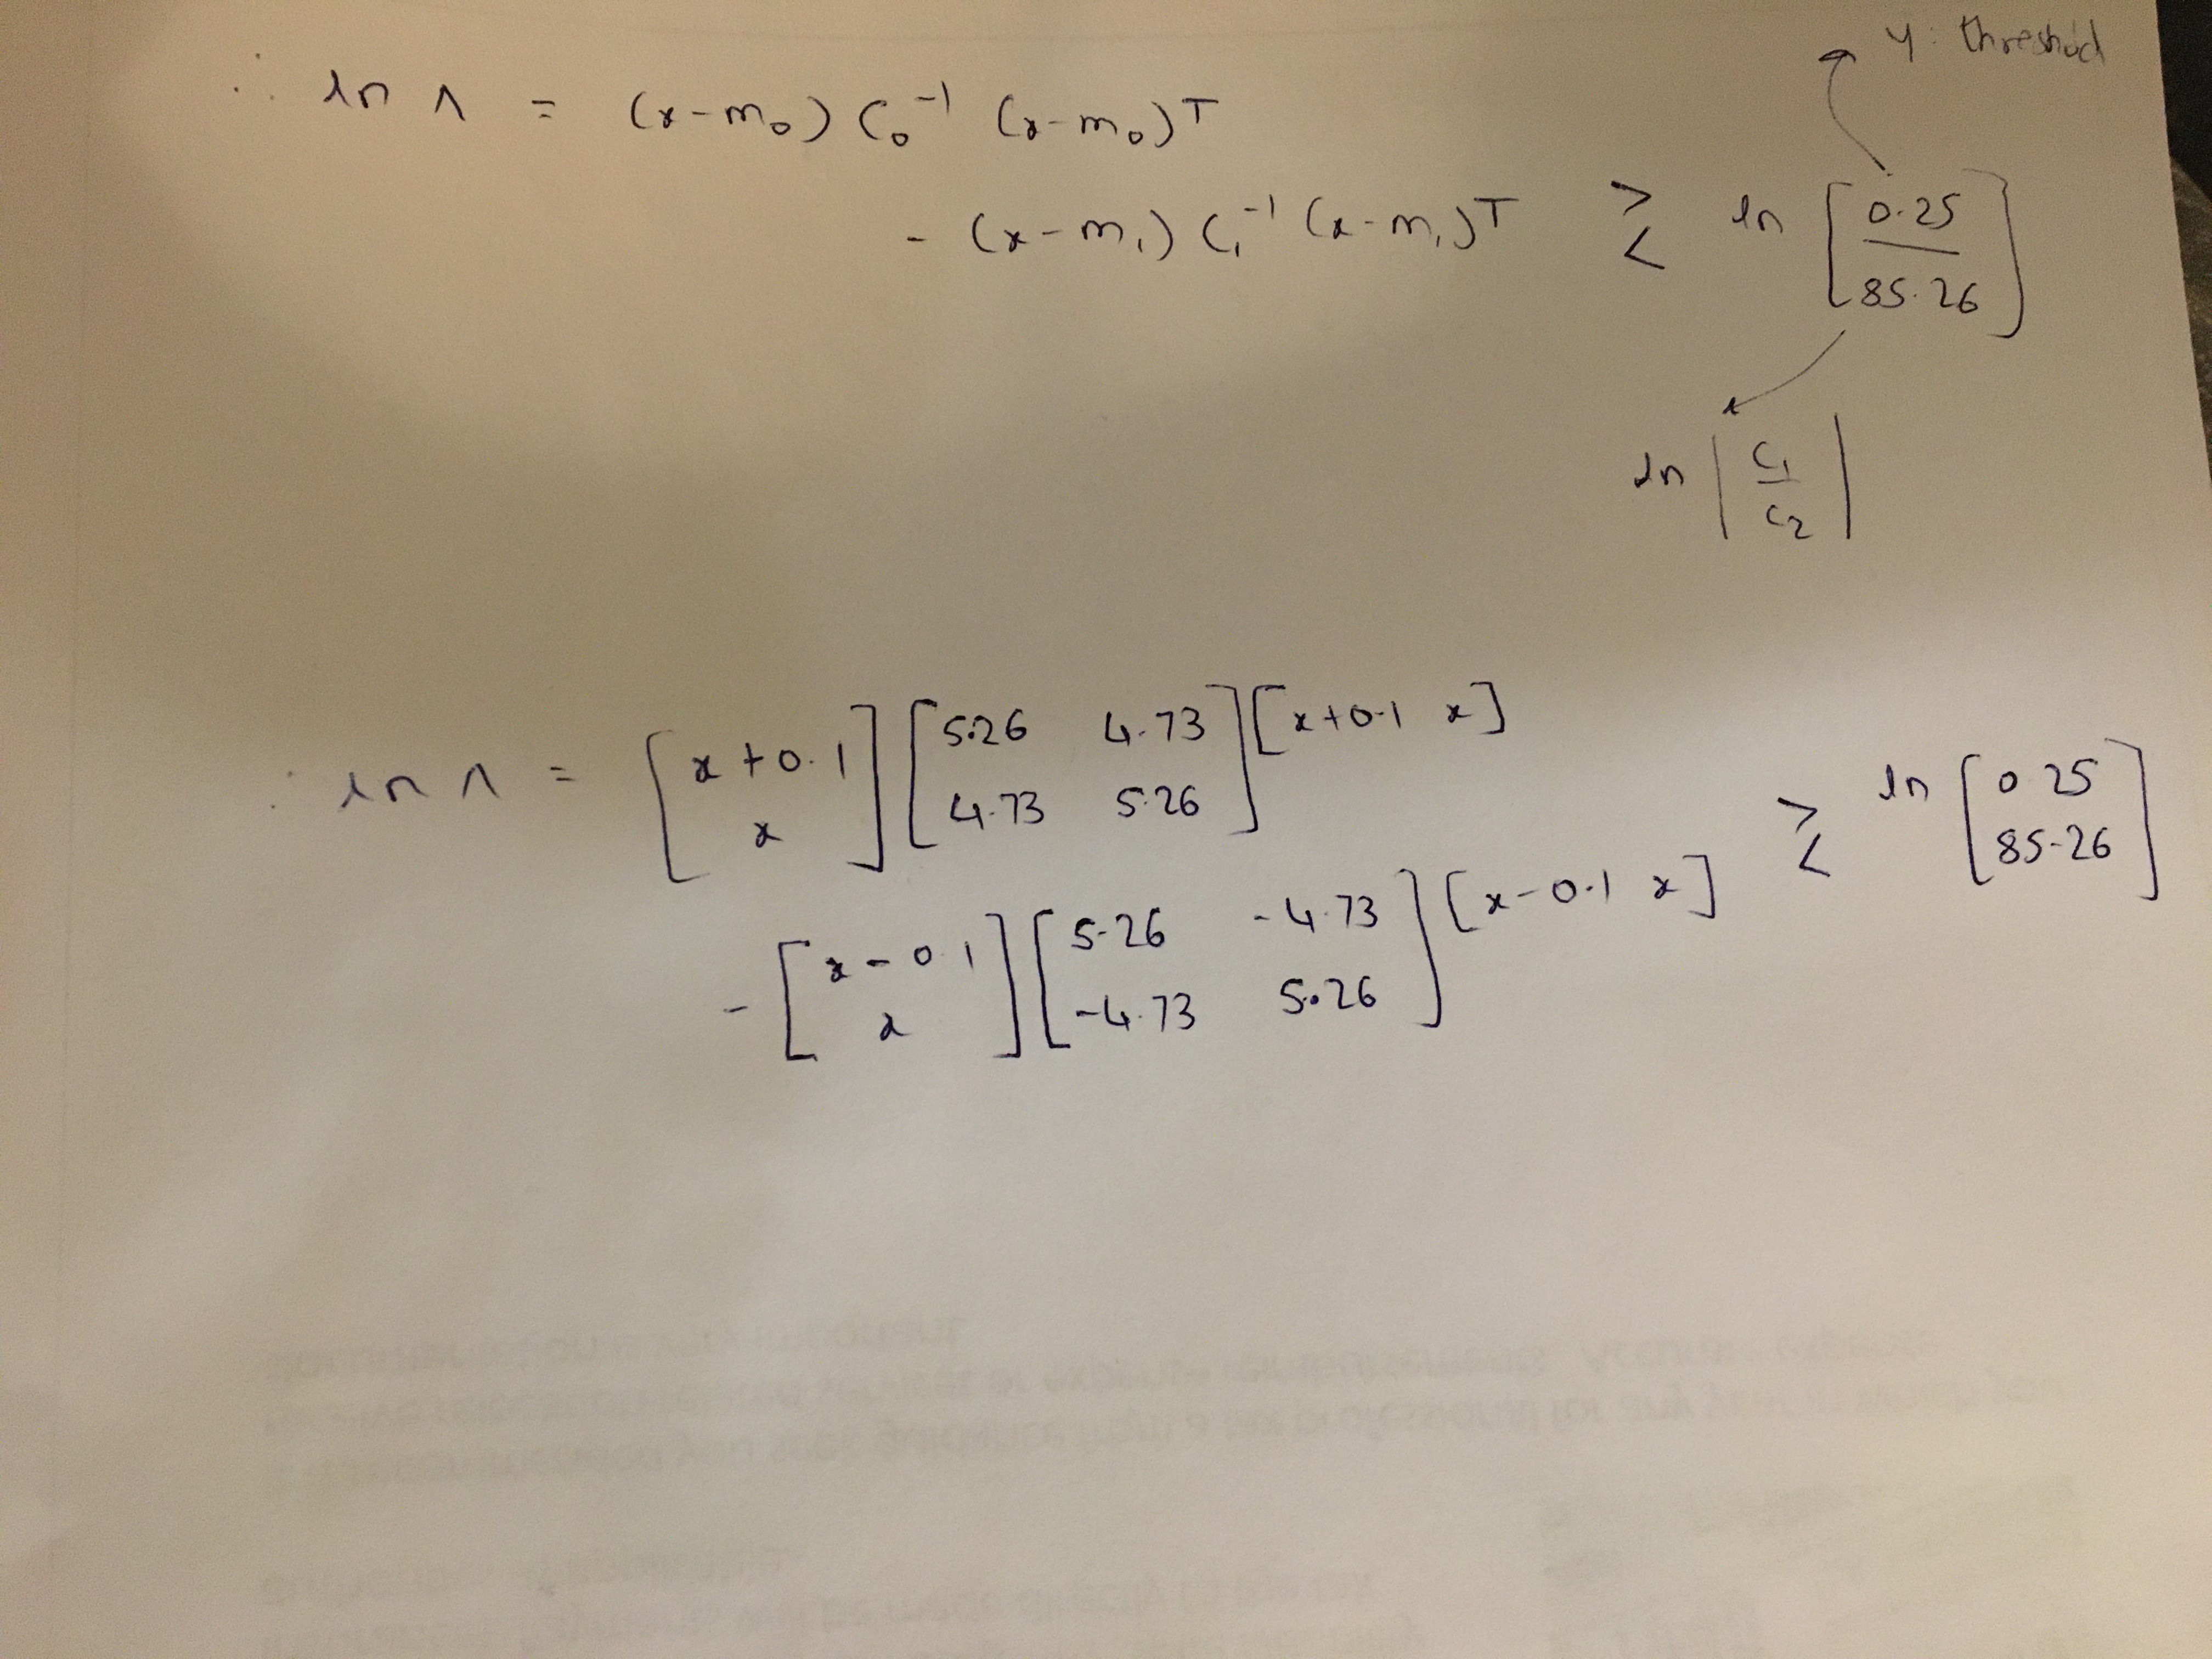 ∴ ln Λ = (x-m₀) C₀⁻¹ (x-m₀)ᵀ
- (x-m₁) C₁⁻¹ (x-m₁)ᵀ ≷ ln [0.25 / 85.26]
γ: threshold
ln | C₁ / C₂ |
∴ ln Λ = [x+0.1 ; x] [5.26 4.73 ; 4.73 5.26] [x+0.1 x]
- [x-0.1 ; x] [5.26 -4.73 ; -4.73 5.26] [x-0.1 x] ≷ ln [0.25 ; 85.26]